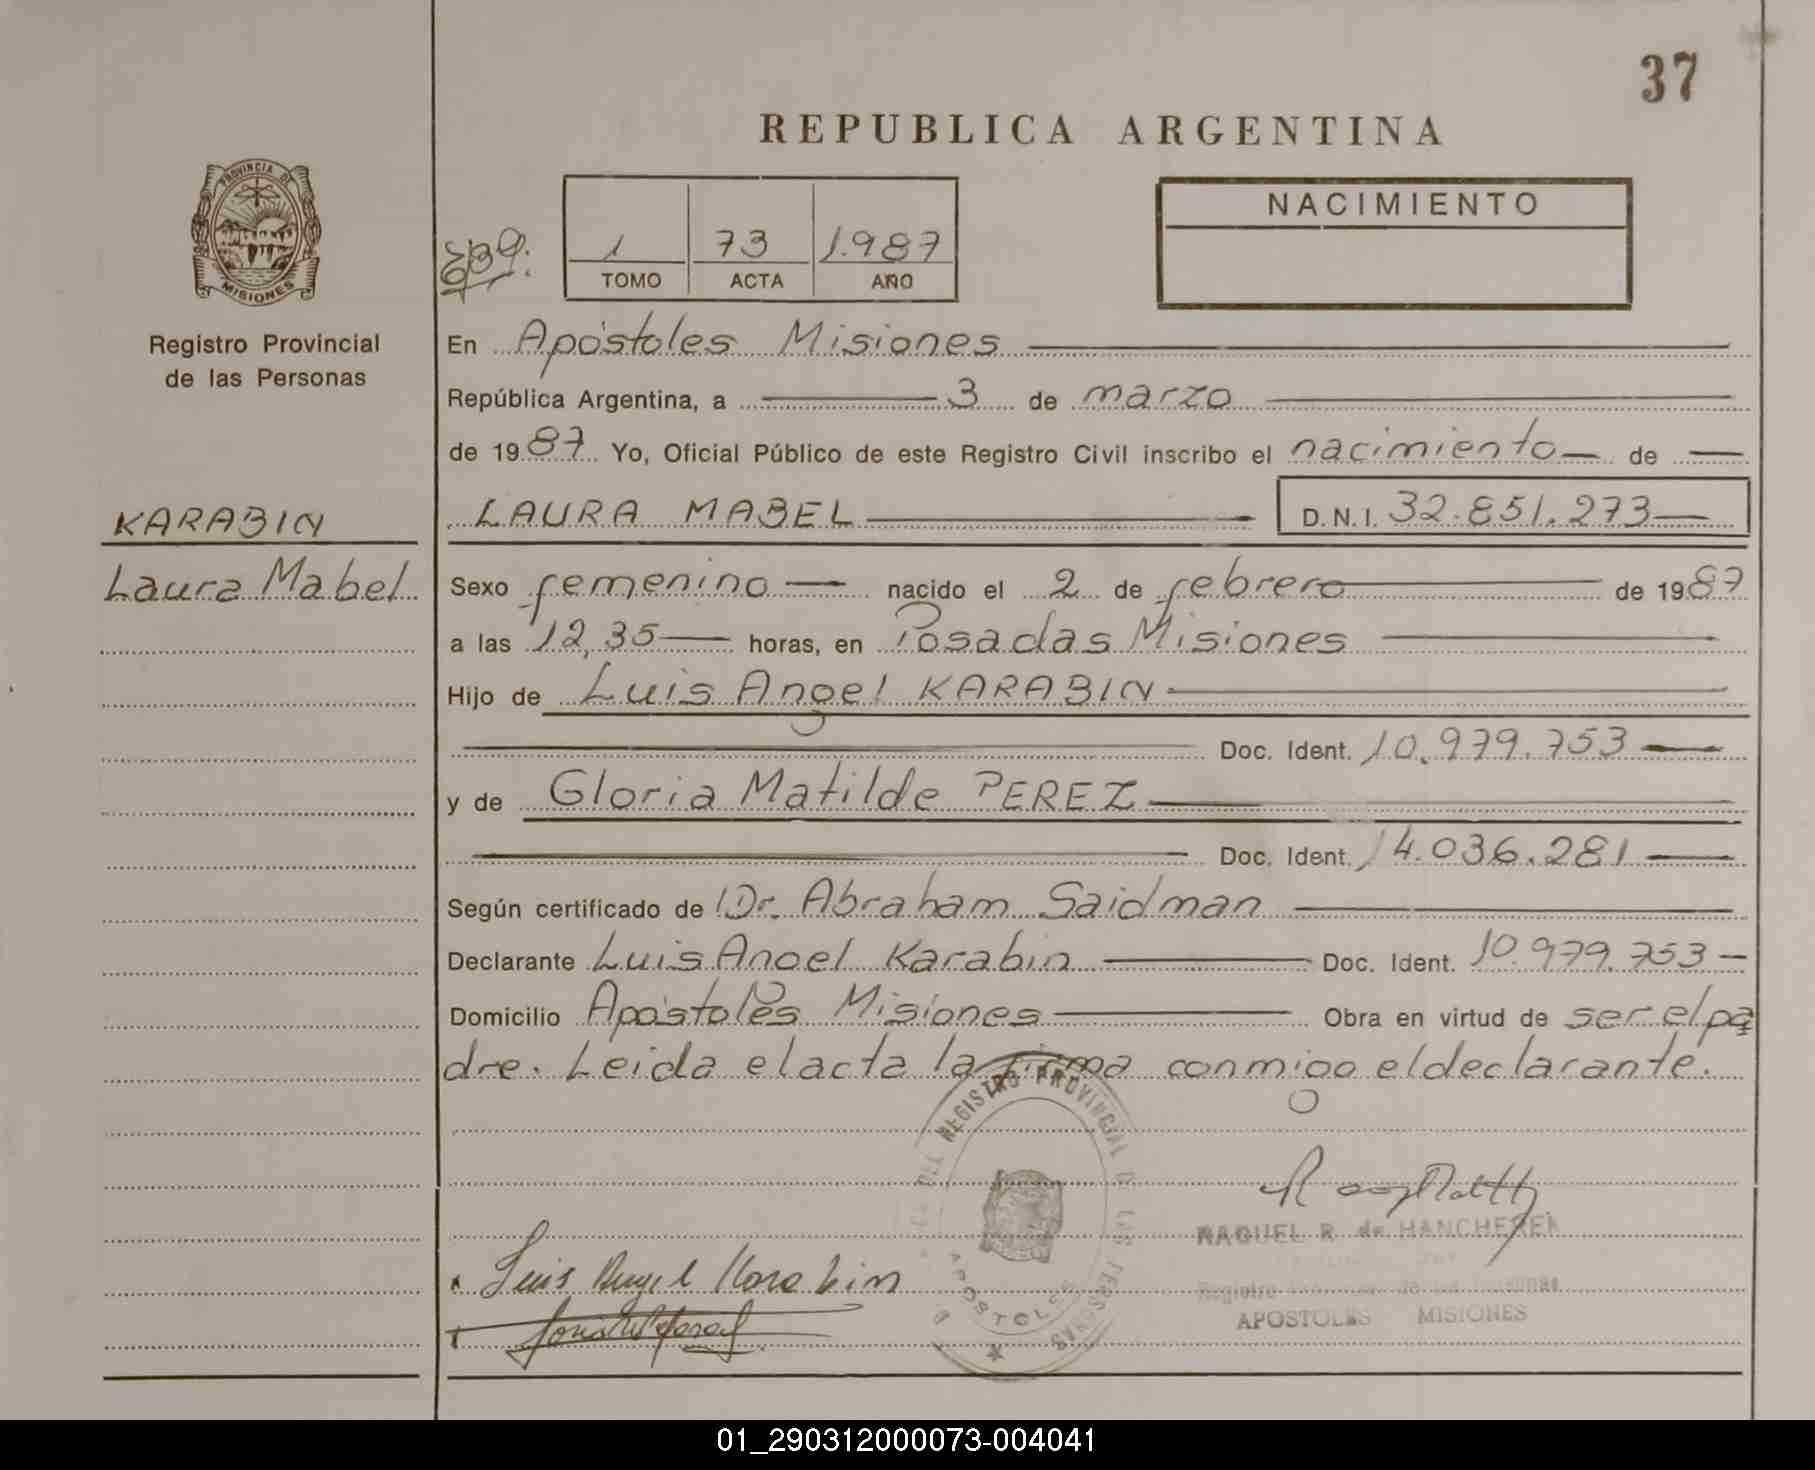 37
REPUBLICA ARGENTINA
PROVINCIA DE
MISIONES
Registro Provincial
de las Personas
KARABIN
Laura Mabel
639.
1 73 1.987
TOMO ACTA AÑO
NACIMIENTO
En Apóstoles Misiones
República Argentina, a 3 de marzo
de 1987 Yo, Oficial Público de este Registro Civil inscribo el nacimiento de
LAURA MABEL D.N.I. 32.851.273
Sexo femenino nacido el 2 de febrero de 1987
a las 12,35 horas, en Posadas Misiones
Hijo de Luis Angel KARABIN
Doc. Ident. 10.979.753
y de Gloria Matilde PEREZ
Doc. Ident. 14.036.281
Según certificado de Dr. Abraham Saidman
Declarante Luis Angel Karabin Doc. Ident. 10.979.753
Domicilio Apóstoles Misiones Obra en virtud de ser el pa
dre. Leida el acta la firma conmigo el declarante.
REGISTRO PROVINCIAL DE LAS PERSONAS
APOSTOLES
RAQUEL R. de HANCHEREK
Registro de las Personas
APOSTOLES MISIONES
Luis Angel Karabin
01_290312000073-004041